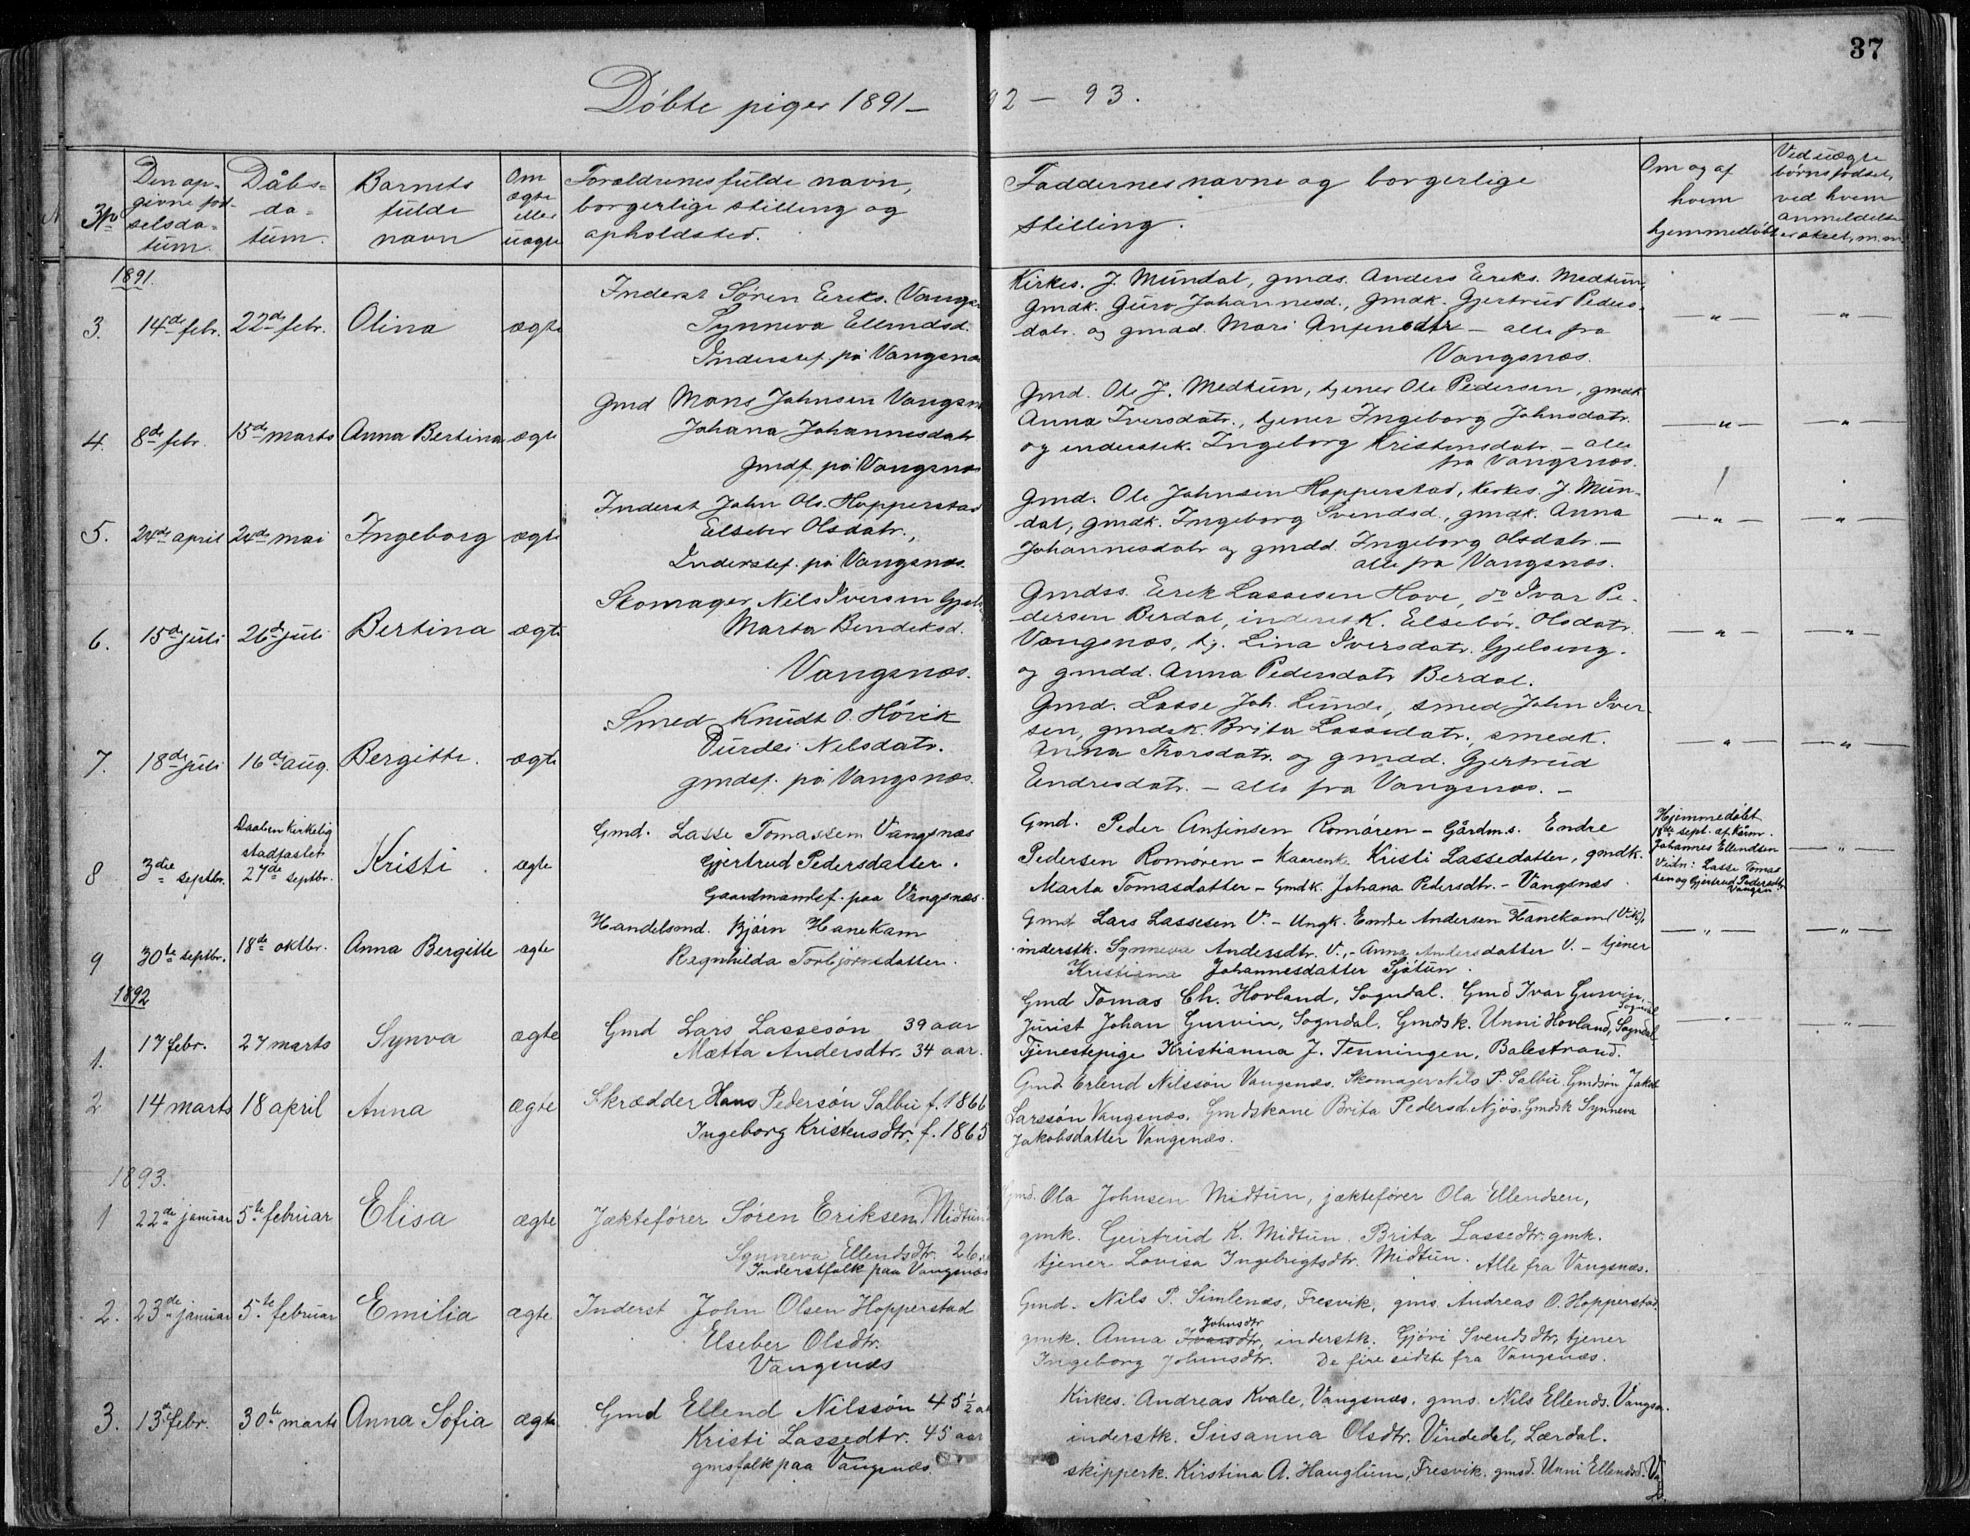 37
Døbte piger 1891-92-93.
No
Den op-
givne fød-
selsda-
tum.
Dåbs-
da-
tum.
Barnets
fulde
navn
Om
ægte
eller
uægte
Forældrenes fulde navn,
borgerlige stilling og
opholdsted.
Faddernes navne og borgerlige
stilling.
Om og af
hvem
hjemmedøbt
Ved uægte
børns fødsel,
ved hvem
anmeldelse
er skeet, m.m.
1891.
3. 14de febr. 22de febr. Olina ægte
Inderst Søren Eriks. Vangsn
Synneva Ellendsd.
Inderstf. på Vangsnæs
Kirkes. J. Mundal, gmds. Anders Eriks. Medtun,
gmdk. Guro Johannesd., gmdk. Gjertrud Peders-
datr. og gmdd. Mari Anfinsdtr - alle fra
Vangsnæs.
4. 8de febr. 15de marts Anna Bertina ægte
Gmd Mons Johnsen Vangsn
Johana Johannesdatr
Gmdf. på Vangsnæs
Gmd. Ole J. Medtun, tjener Ole Pedersen, gmdk
Anna Iversdatr., tjener Ingeborg Johnsdatr.
og inderstk. Ingeborg Kristensdatr - alle
fra Vangsnæs.
5. 24de april 24de mai Ingeborg ægte
Inderst John Ols. Hopperstad
Elseber Olsdatr.,
Inderstf. på Vangsnæs.
Gmd. Ole Johnsen Hopperstad, Kirkes. J. Mun-
dal, gmdk. Ingeborg Svendsd., gmdk. Anna
Johannesdatr og gmdd. Ingeborg Olsdatr. -
alle fra Vangsnæs.
6. 15de juli 26de juli Bertina ægte
Skomager Nils Iversen
Marta Bendiksd.
Vangsnæs.
Gmdss. Erik Lassesen Hove, do Ivar Pe-
dersen Berdal, inderstk. Elsebør. Olsdatr.
Vangsnæs, tj. Lina Iversdatr. Gjelseng.
og gmdd. Anna Pedersdatr Berdal.
7. 18de juli 16de aug. Bergitte. ægte
Smed Knudt O. Hövik
Durdei Nelsdatr.
gmdsf. på Vangsnæs.
Gmd. Lasse Joh. Lunde, smed John Iver-
sen, gmdsk. Brita Lassedatr., smedk.
Anna Thorsdatr. og gmdd. Gjertrud
Endresdatr. - alle fra Vangsnæs. -
8 3die septbr.
Daaben kirkelig
stadfæstet
27de septbr.
Kristi. ægte
Gmd. Lasse Tomassen Vangsnæs
Gjertrud Pedersdatter.
Gaardmandsf. paa Vangsnæs.
Gmd. Peder Anfinsen Romören - Gårdm.s. Endre
Pedersen Romören - Kaarenk. Kristi Lassedatter, gmdk.
Marta Tomasdatter - Gmdk. Johana Pedersdtr. - Vangsnæs.
Hjemmedøbt
18de sept. af Kårm.
Johannes Ellendsen
Vidn: Lasse Tomas
sen og Gjertrud Pedersdtr
Vangsn
9 30te septbr. 18de oktbr. Anna Bergitte ægte
Handelsmd. Bjørn Hanekam
Ragnhilda Torbjørnsdatter.
Gmd Lars Lassesen V. - Ungk. Endre Andersen Hanekam (Vik),
inderstk. Synneva Andersdtr. V., - Anna Andersdatter V. - tjener
Kristiana Johannesdatter Sjøtun.
1892
1. 17 febr. 27 marts Synva ægte
Gmd Lars Lassesön 39 aar
Mætta Andersdtr. 34 aar.
Gmd Tomas Ch. Hovland, Sogndal. Gmd Ivar Gurvin,
Sogndal
Jurist Johan Gurvin, Sogndal. Gmdsk. Unni Hovland, Sogndal
Tjenestepige Kristianna J. Tenningen, Balestrand.
2 14 marts 18 april Anna ægte
Skrædder Hans Pedersön Salbu f. 1866
Ingeborg Kristensdtr. f. 1865
Gmd. Erlend Nilssön Vangsnæs. Skomager Nils P. Salbu. Gmdsön Jakob
Larssön Vangsnæs. Gmdskone Brita Pedersd. Njøs. Gmdsk Synneva
Jakobsdatter Vangsnæs.
1893.
1 22de januar 5te februar Elisa ægte
Jæktefører Søren Eriksen Midtun
Synneva Ellendsdtr. 26
Inderstfolk paa Vangsnæs
Gmd. Ola Johnsen Midtun, jæktefører Ola Ellendsen,
gmk. Geirtrud K. Midtun. Brita Lassedtr. gmk.
tjener Lovisa Ingebrigtsdtr. Midtun. Alle fra Vangsnæs.
2. 23de januar 5te februar Emilia ægte
Inderst John Olsen Hopperstad
Elseber Olsdtr.
Vangsnæs
Gmd. Nils P. Simlenæs, Fresvik, gms. Andreas O. Hopperstad.
Johnsdtr
gmk. Anna Ivarsdtr, inderstk. Gjøri Svendsdtr, tjener
Ingeborg Johnsdtr. De fire sidste fra Vangsnæs.
3. 13de febr. 30te marts Anna Sofia ægte
Gmd Ellend Nilssön 45½ aar
Kristi Lassedtr. 45 aar
gmsfolk paa Vangsnæs.
Kirkes. Andreas Kvale, Vangsnæs, gms. Nils Ellends. Vangsn.
inderstk. Susanna Olsdtr. Vindedal, Lærdal.
skipperk. Kirstina A. Hauglum, Fresvik. gmsd. Unni Ellendsd. V